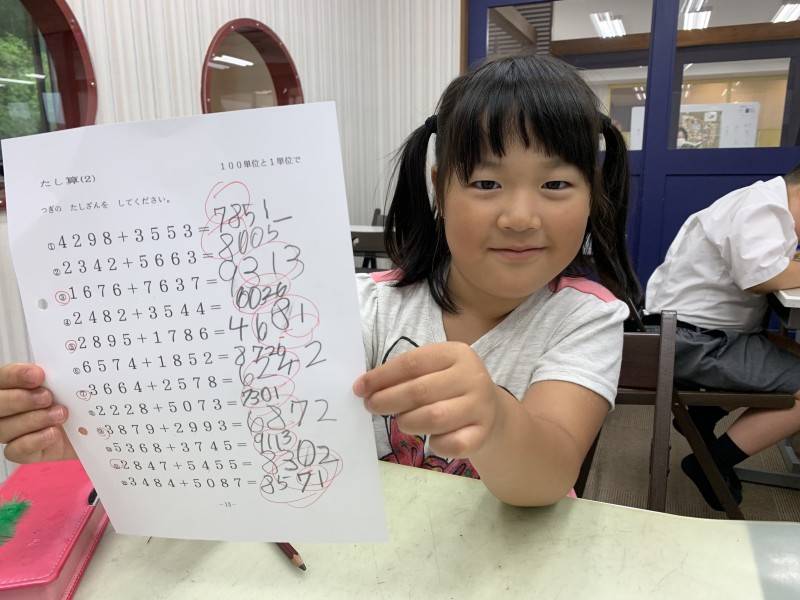 たし算(2)
100単位と1単位で
つぎの たしざんを してください。
①4298+3553=7851
②2342+5663=8005
③1676+7637=9313
④2482+3544=6026
⑤2895+1786=4681
⑥6574+1852=8726
⑦3664+2578=6242
⑧2228+5073=7301
⑨3879+2993=6872
⑩5368+3745=9113
⑪2847+5455=8302
⑫3484+5087=8571
-13-